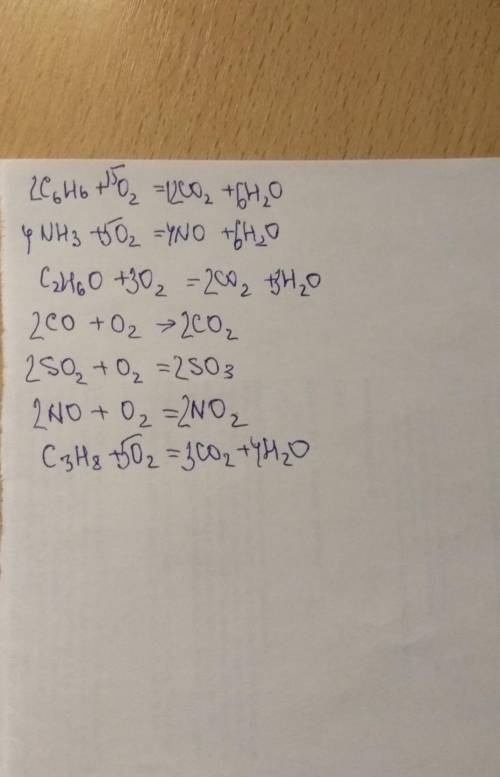 2C₆H₆ + 15O₂ = 12CO₂ + 6H₂O
4NH₃ + 5O₂ = 4NO + 6H₂O
C₂H₆O + 3O₂ = 2CO₂ + 3H₂O
2CO + O₂ → 2CO₂
2SO₂ + O₂ = 2SO₃
2NO + O₂ = 2NO₂
C₃H₈ + 5O₂ = 3CO₂ + 4H₂O